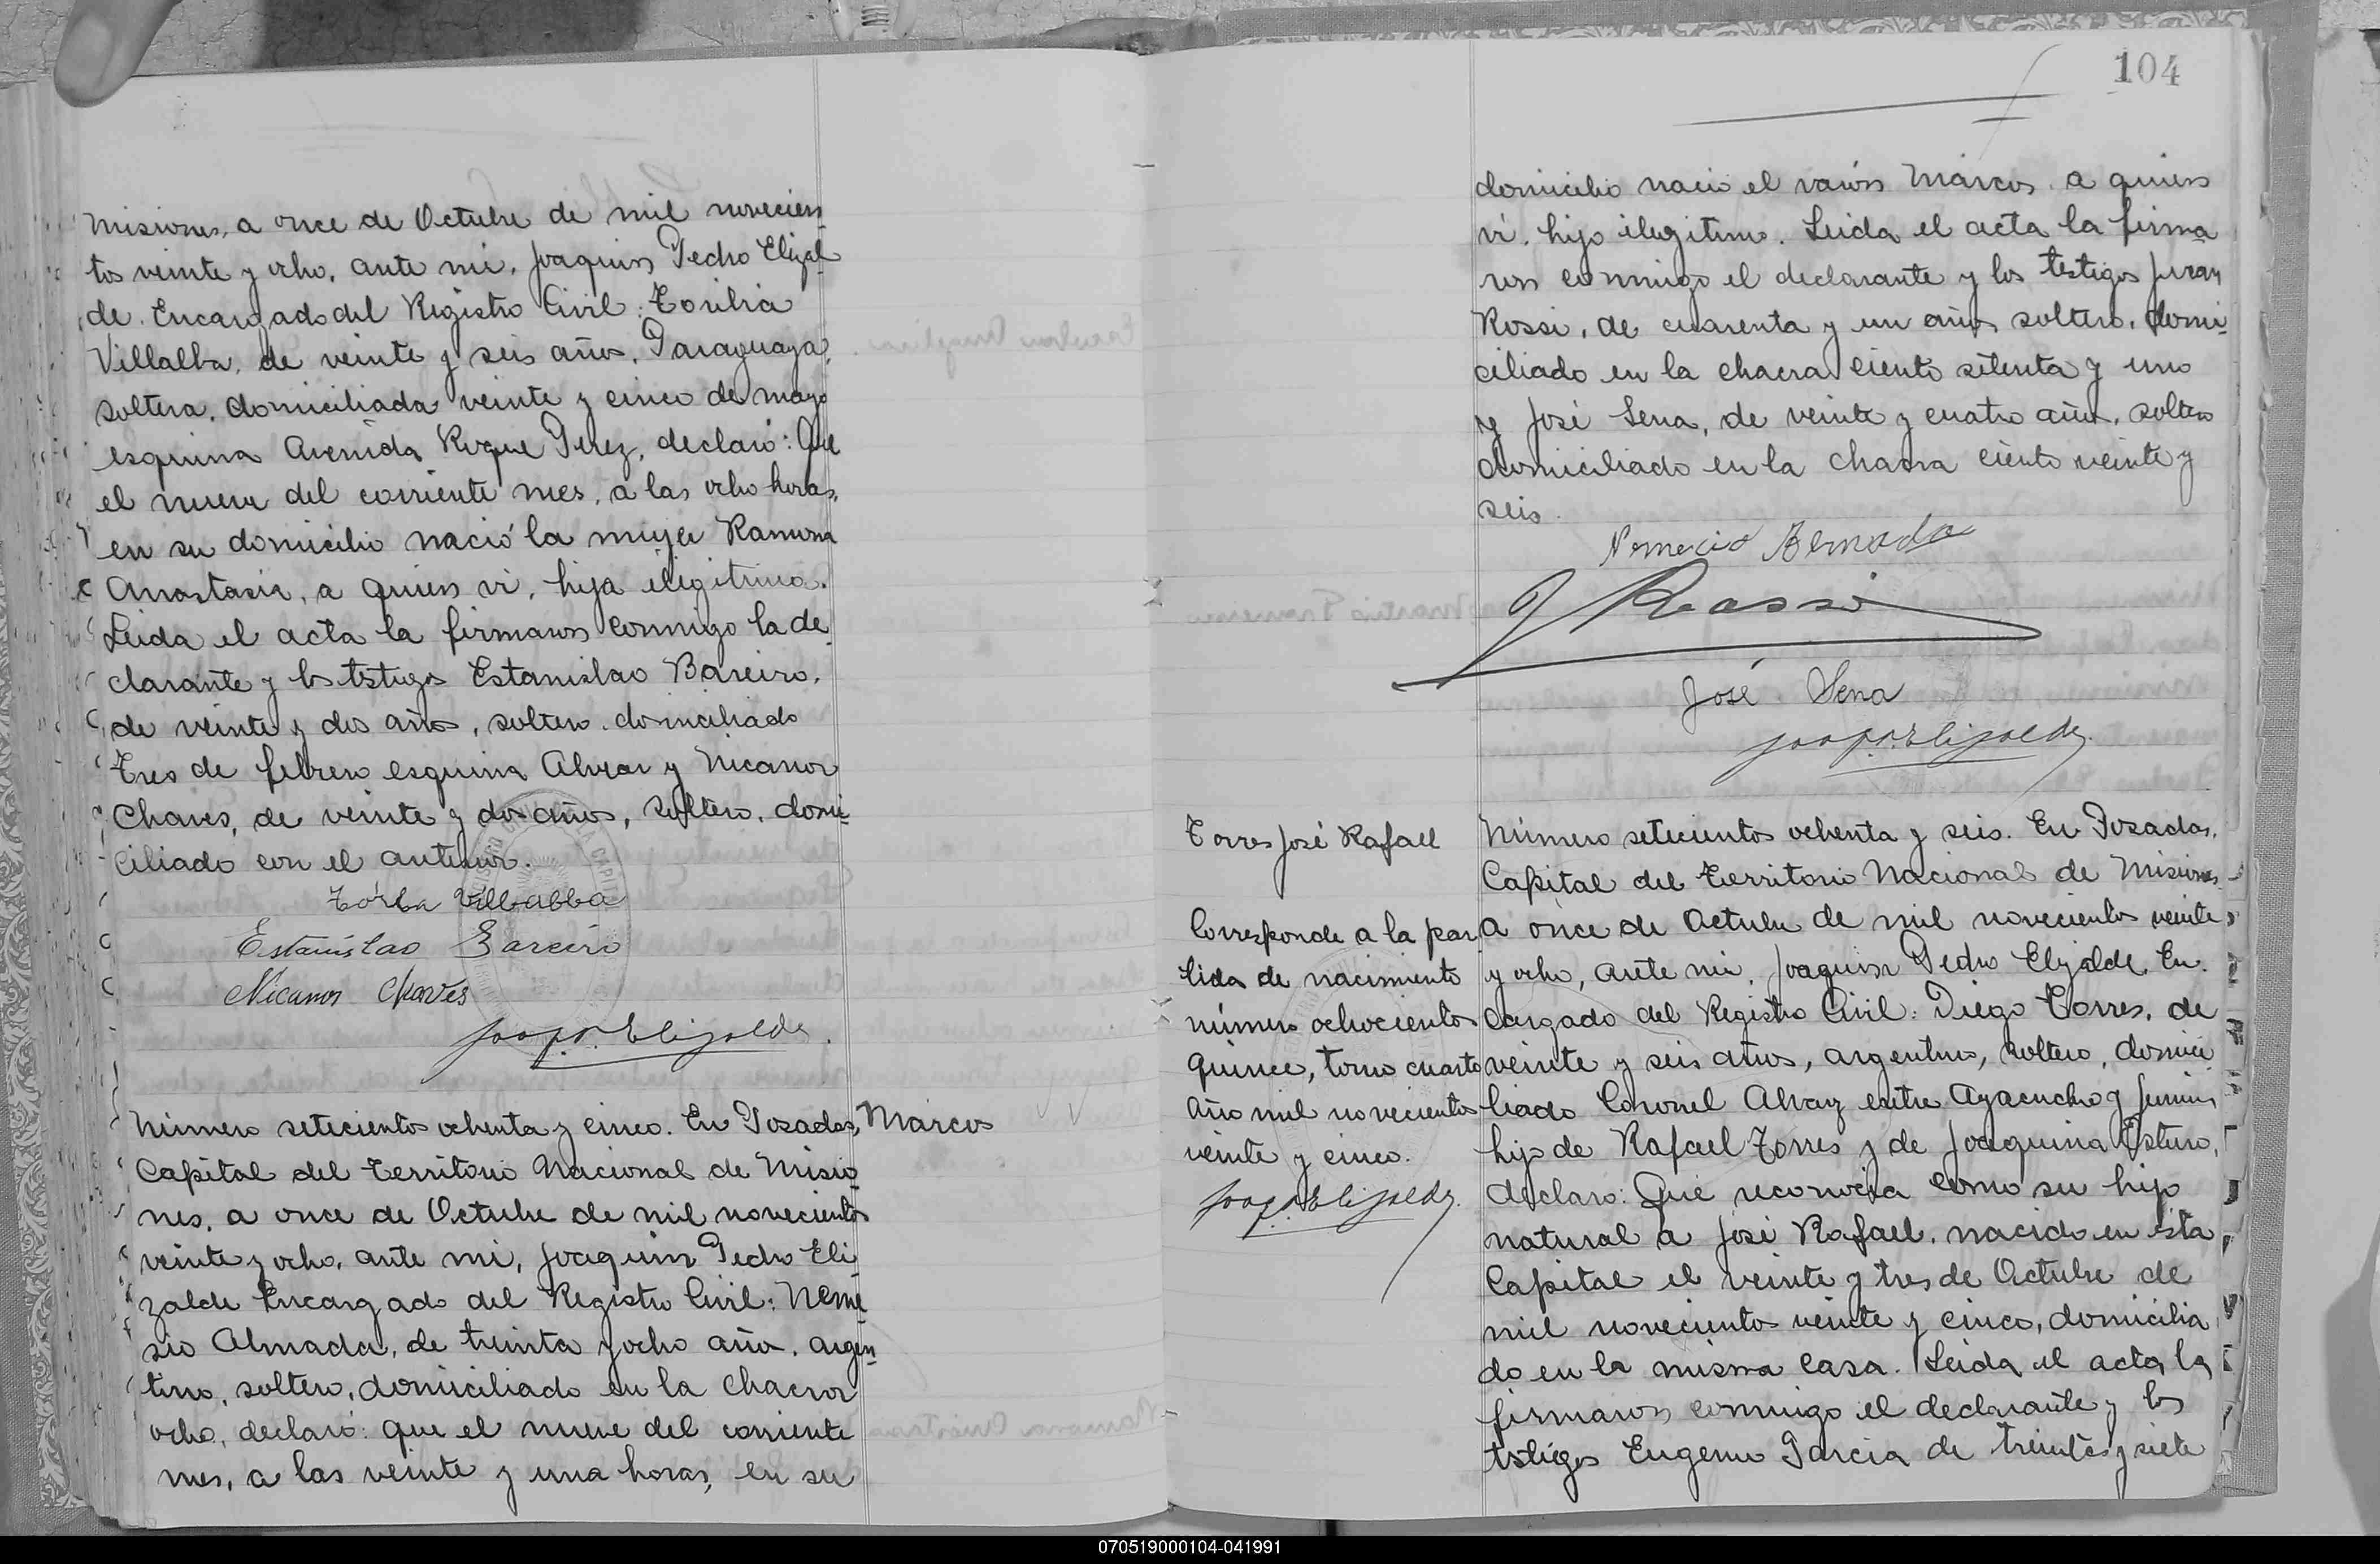 Misiones, a once de Octubre de mil novecien
tos veinte y ocho, ante mi, Joaquin Pedro Elizal
de Encargado del Registro Civil: Torilia
Villalba, de veinte y seis años, Paraguaya,
soltera, domiciliada veinte y cinco de mayo
esquina Avenida Roque Perez, declaró: Que
el nueve del corriente mes, a las ocho horas,
en su domicilio nació la mujer Ramona
Anastasia, a quien vi, hija ilegitima.
Leida el acta la firmaron conmigo la de
clarante y los testigos Estanislao Bareiro,
de veinte y dos años, soltero, domiciliado
Tres de febrero esquina Alvear y Nicanor
Chaves, de veinte y dos años, soltero, domi
ciliado con el anterior.
Villalba
Estanislao Bareiro
Nicanor Chaves
Joaq. P. Elizalde
Número setecientos ochenta y cinco. En Posadas,
Capital del Territorio Nacional de Misio
nes, a once de Octubre de mil novecientos
veinte y ocho, ante mi, Joaquin Pedro Eli
zalde Encargado del Registro Civil: Neme
sio Almada, de treinta y ocho años, argen
tino, soltero, domiciliado en la chacra
ocho, declaró: que el nueve del corriente
mes, a las veinte y una horas, en su
Marcos
104
domicilio nació el varón Marcos, a quien
vi, hijo ilegitimo. Leida el acta la firma
ron conmigo el declarante y los testigos Juan
Rossi, de cuarenta y un años, soltero, domi
ciliado en la chacra ciento setenta y uno
y José Sena, de veinte y cuatro años, soltero
domiciliado en la chacra ciento veinte y
seis.
J Rossi
José Sena
Joaq. P. Elizalde
Torres José Rafael
Corresponde a la par
tida de nacimiento
número ochocientos
quince, tomo cuarto
año mil novecientos
veinte y cinco.
Joaq. P. Elizalde
Número setecientos ochenta y seis. En Posadas,
Capital del Territorio Nacional de Misiones
a once de Octubre de mil novecientos veinte
y ocho, ante mi, Joaquin Pedro Elizalde, En
cargado del Registro Civil: Diego Torres, de
veinte y seis años, argentino, soltero, domici
liado Coronel Alvarez entre Ayacucho y Junin,
hijo de Rafael Torres y de Joaquina
declaro: Que reconocia como su hijo
natural a José Rafael, nacido en esta
Capital el veinte y tres de Octubre de
mil novecientos veinte y cinco, domicilia
do en la misma casa. Leida el acta la
firmaron conmigo el declarante y los
testigos Eugenio Garcia de treinta y siete
070519000104-041991